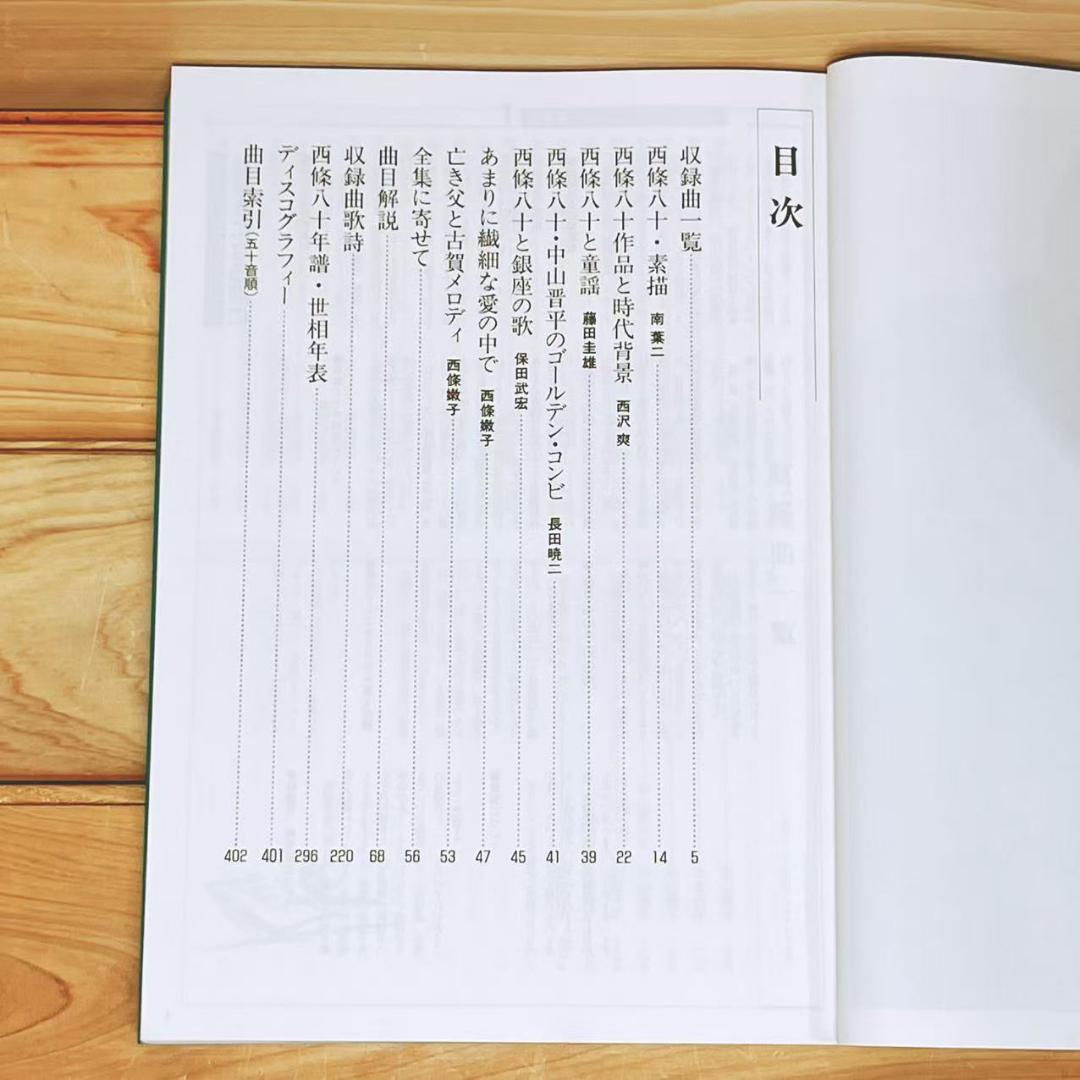 目次
収録曲一覧 5
西條八十・素描 南葉二 14
西條八十作品と時代背景 西沢爽 22
西條八十と童謡 藤田圭雄 39
西條八十・中山晋平のゴールデン・コンビ 長田暁二 41
西條八十と銀座の歌 保田武宏 45
あまりに繊細な愛の中で 西條嫩子 47
亡き父と古賀メロディ 西條嫩子 53
全集に寄せて 56
曲目解説 68
収録曲歌詩 220
西條八十年譜・世相年表 296
ディスコグラフィー 401
曲目索引(五十音順) 402